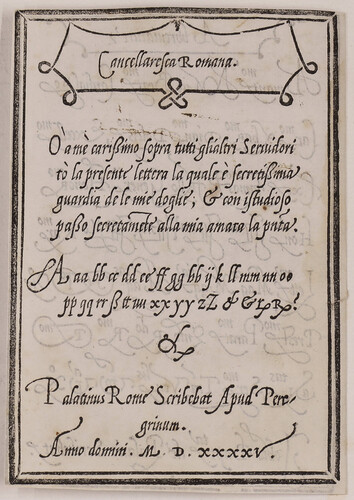 Cancellaresca Romana.
O a me carißimo sopra tutti gli altri Seruidori
tò la presente lettera la quale è secretißima
guardia de le mie doglie; & con istudioso
paßo secretamẽte alla mia amata la pñta.
A aa bb cc dd ee ff gg bb ij k ll mm nn oo
pp qq rr ß tt uu xx yy zZ & &
Palatinus Rome Scribebat Apud Pere-
grinum.
Anno domini. M D. XXXXV.